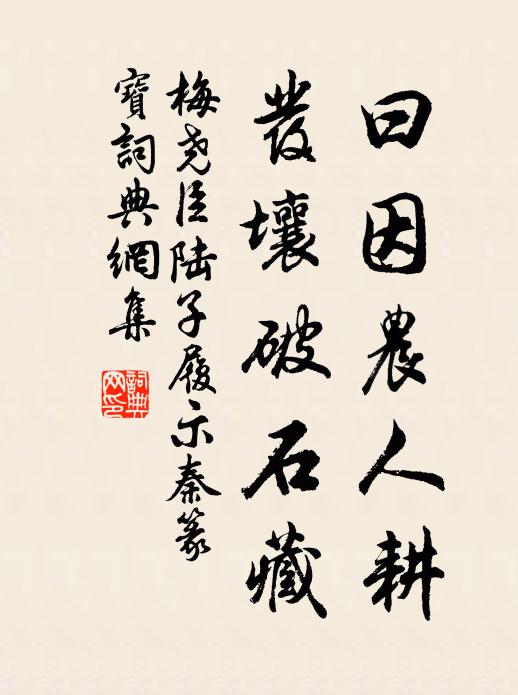 曰因農人耕
發壤破石藏
梅堯臣陸子履示秦篆
寶詞典網集
詞典
网印